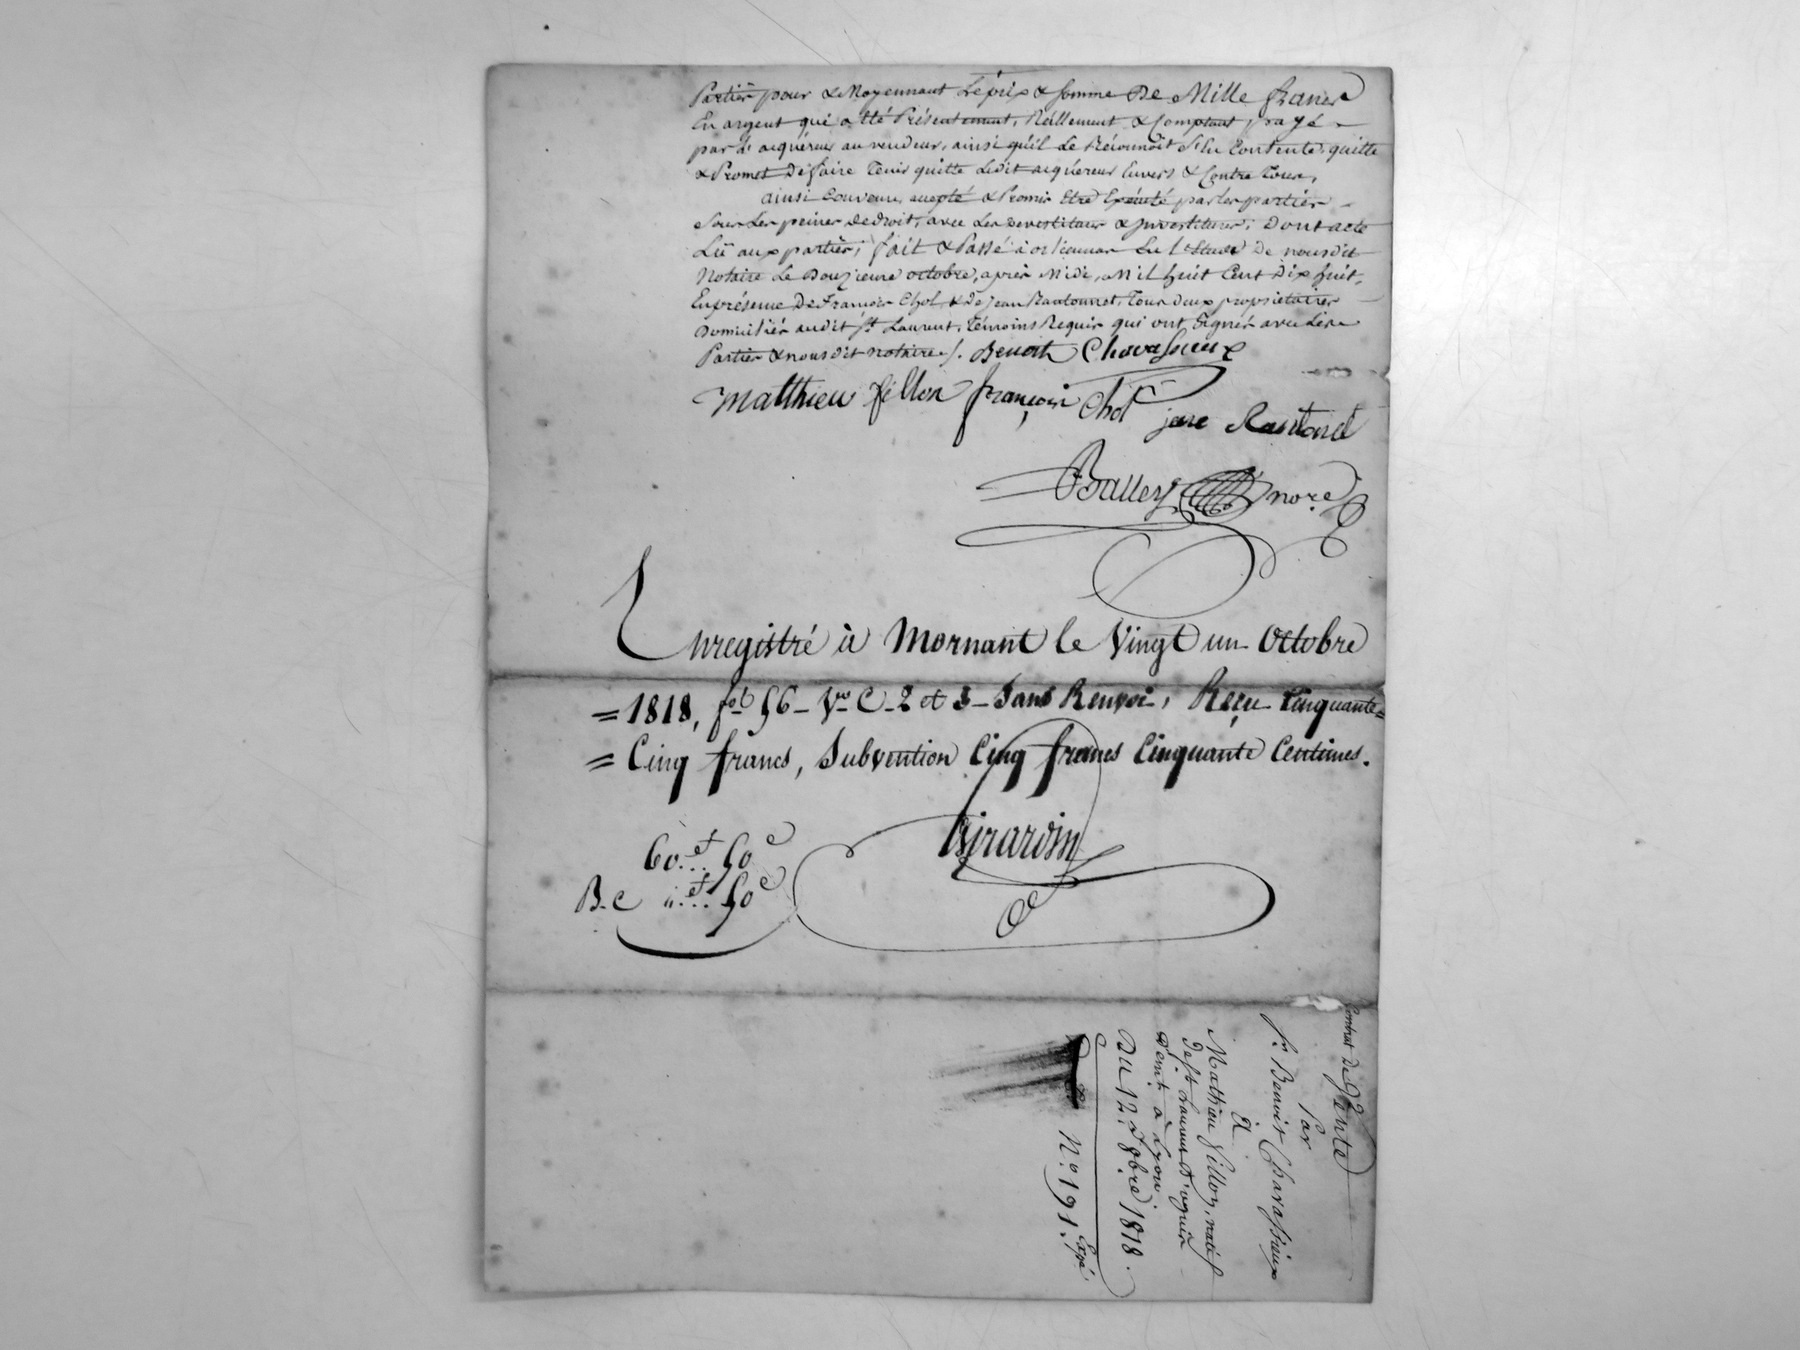 Partiès pour & Moyennant Le prix & somme De Mille francs
En argent qui a été Présentement, Réellement & Comptant payé
par l'acquéreur au vendeur, ainsi qu'il Le Réconnoit S'en Contente, quitte
& Promet De faire Tenir quitte Ledit acquéreur Envers & Contre Tous,
ainsi Convenu, accepté & Promis Etre Exécuté par les partiès
Sous Les peines de droit, avec Les devestitures & Investitures; Dont acte
Lû aux partiès; fait & Passé à orliennas En L'Etude De nousdit
Notaire Le Douzieme octobre, après Midi, Mil huit Cent Dix huit,
En présence De François Chol, & de Jean Raztonnet, Tous deux propriétaires
Domiciliés audit St. Laurent, Témoins Requis qui ont Signés avec Les
Partiès & nousdit notaire /. Benoit Chavassieux
Matthieu fillon françois Chol jean
Balley nore
Enregistré à Mornant le Vingt un Octobre
= 1818, fol. 56 Vo. C. 2 et 3 Sans Renvoi, Reçu Cinquante=
= Cinq francs, Subvention Cinq francs Cinquante Centimes.
Girardin
60.f... 50c
B.C ".f... 50c
Contrat De Vente
Par
Sr. Benoit Chavassieux
A
Mathieu Fillon, natif
De St. Laurent D'agnis
Demt. à Lyon
Du 12. 8bre 1818.
N.º 191. Expé.